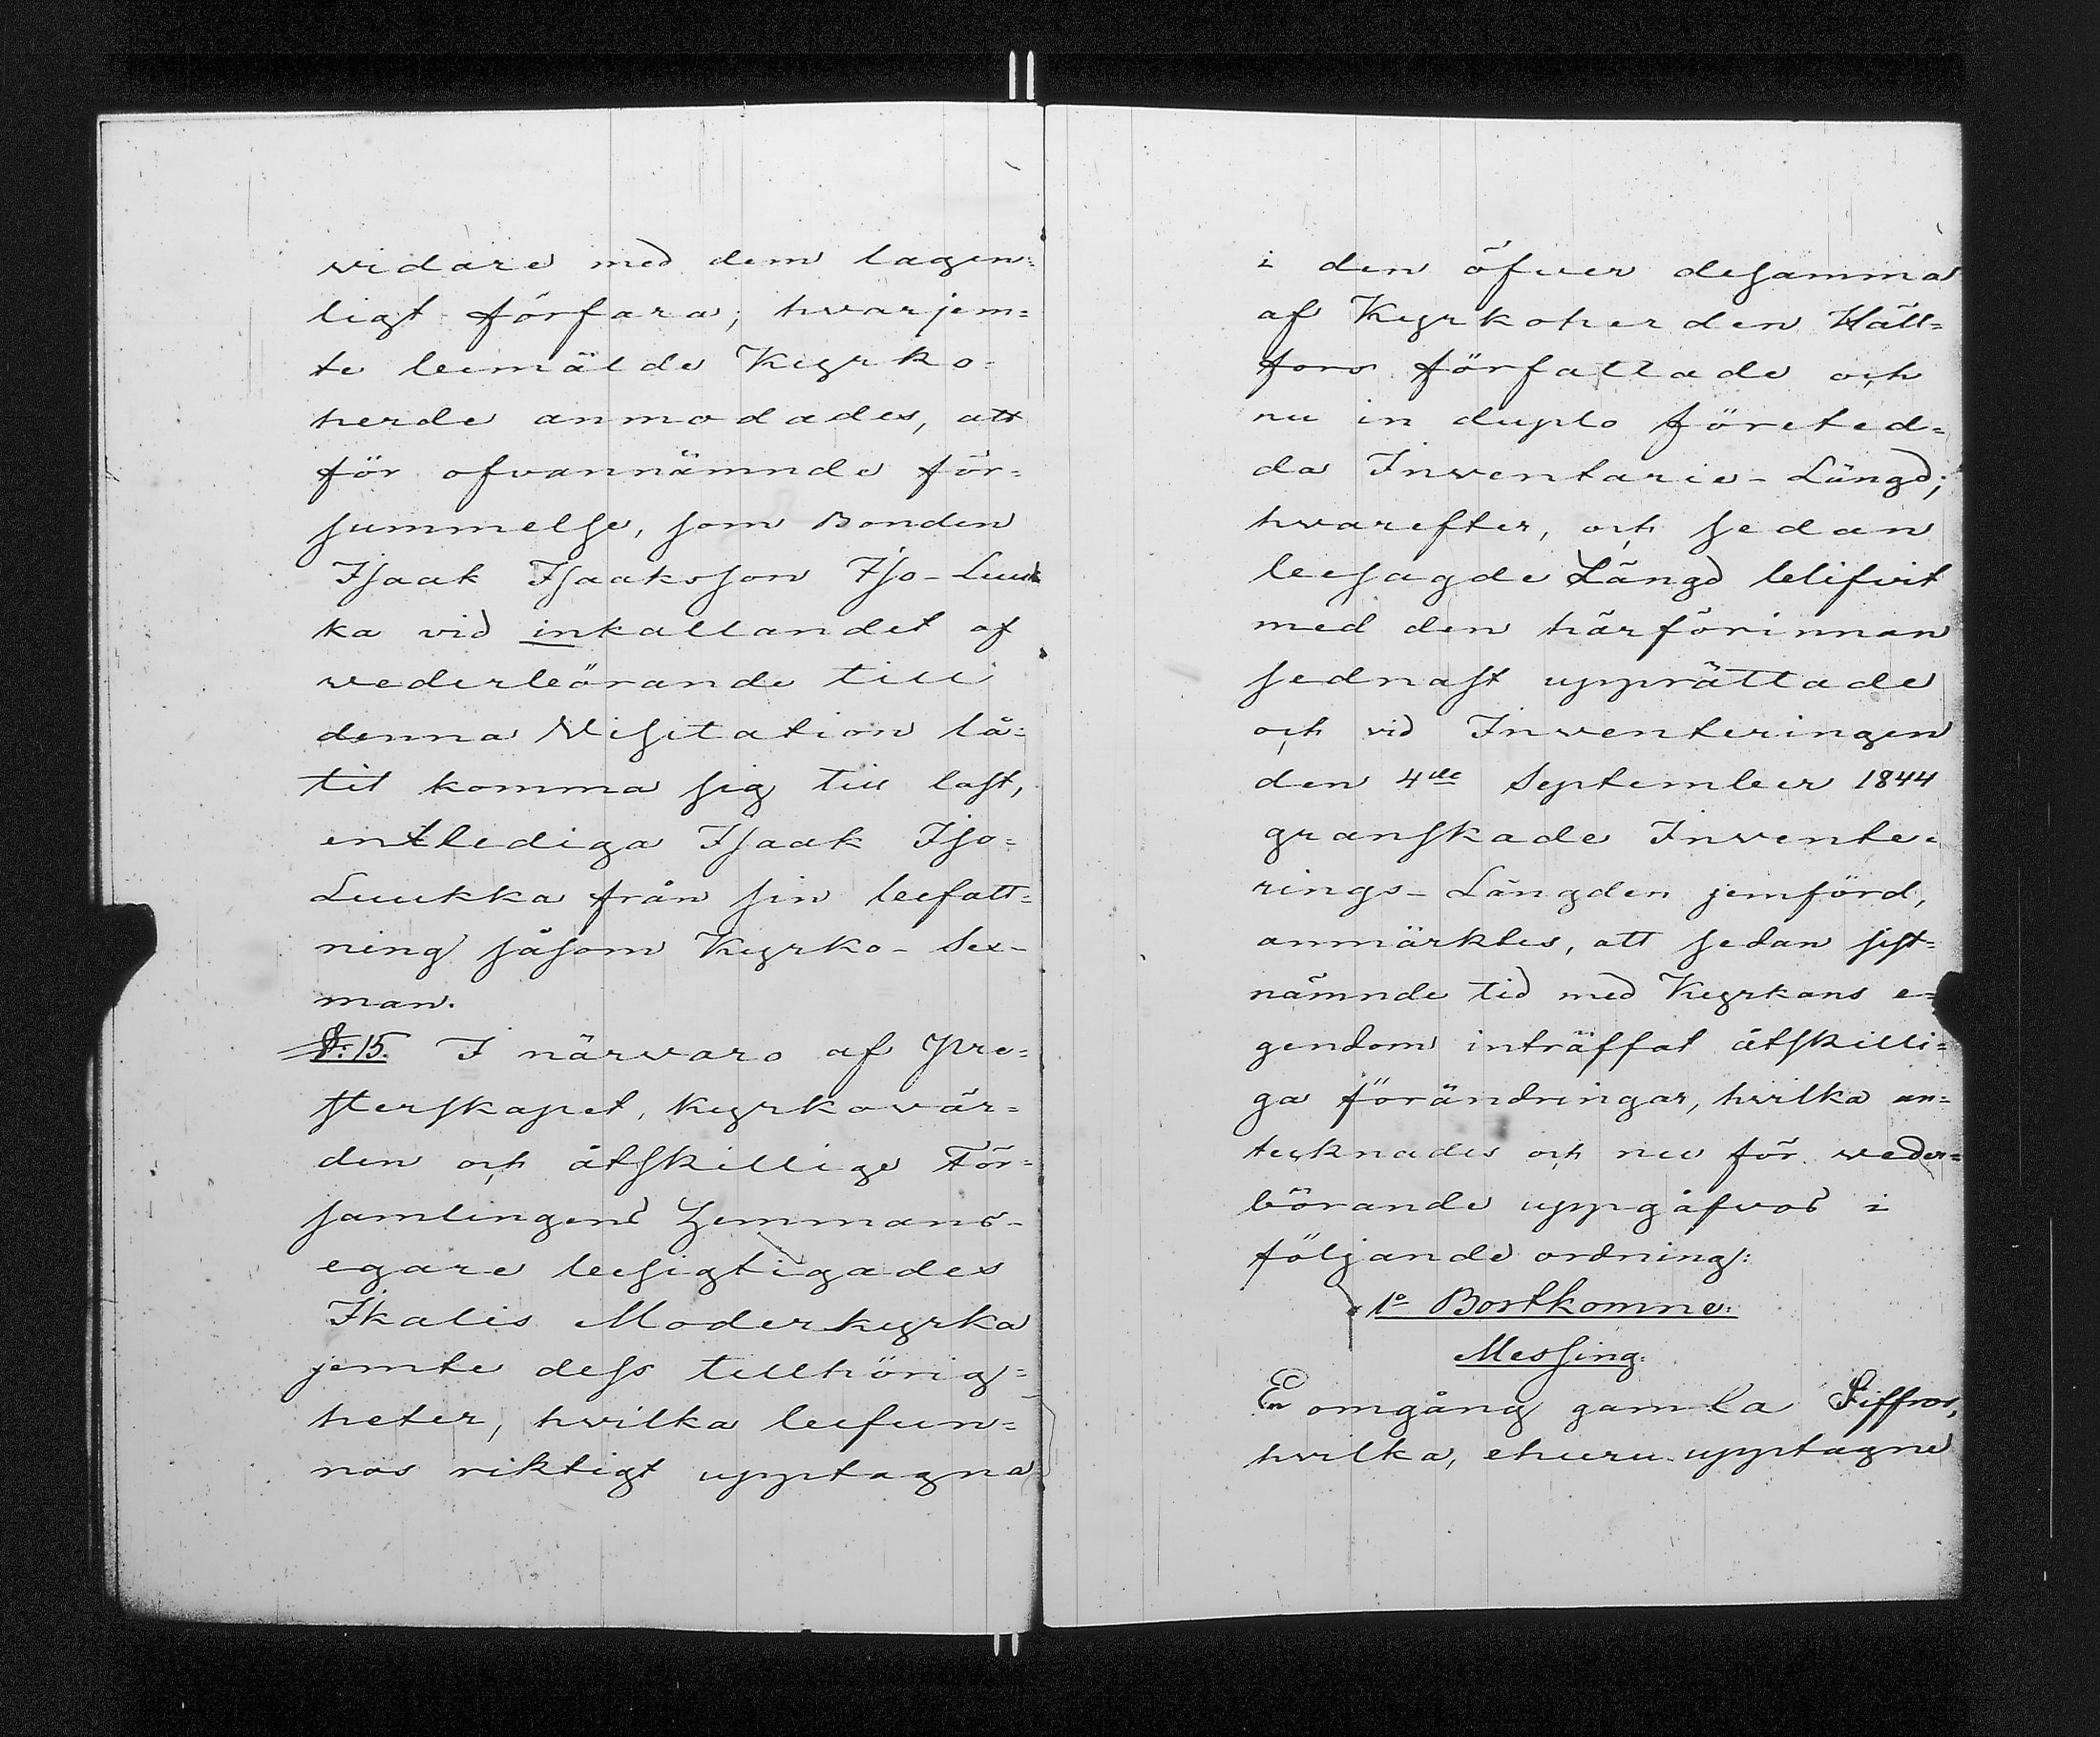 vidare med dem lagen-
ligt förfara; hvarjem-
te bemälde Kyrko-
herde anmodades, att
för ofvannämnde för-
summelse, som Bonden
Isaak Isaaksson Iso-Luuk
ka vid inkallandet af
wederbörande till
denna Visitation lå-
tit komma sig till last,
entlediga Isaak Iso-
Luukka från sin befatt-
ning såsom Kyrko-Sex-
man.
§: 15. I närvaro af Pre-
sterskapet, kyrkovär-
den och åtskillige För-
samlingens Hemmans-
egare besigtigades
Ikalis Moderkyrka
jemte dess tillhörig-
heter, hvilka befun-
nos riktigt upptagna
i den öfver desamma
af Kyrkoherden Häll-
fors författade och
nu in duplo företed-
da Inventarie-Längd;
hvarefter, och sedan
besagde Längd blifvit
med den härförinnan
sednast upprättade
och vid Inventeringen
den 4de September 1844
granskade Invente-
rings-Längden jemförd,
anmärktes, att sedan sist-
nämnde tid med Kyrkans e-
gendom inträffat åtskilli-
ga förändringar, hvilka an-
tecknades och nu för veder-
börande uppgåfvos i
följande ordning:
1o Bortkomne.
Messing.
En omgång gamla Siffror,
hvilka, ehuru upptagne